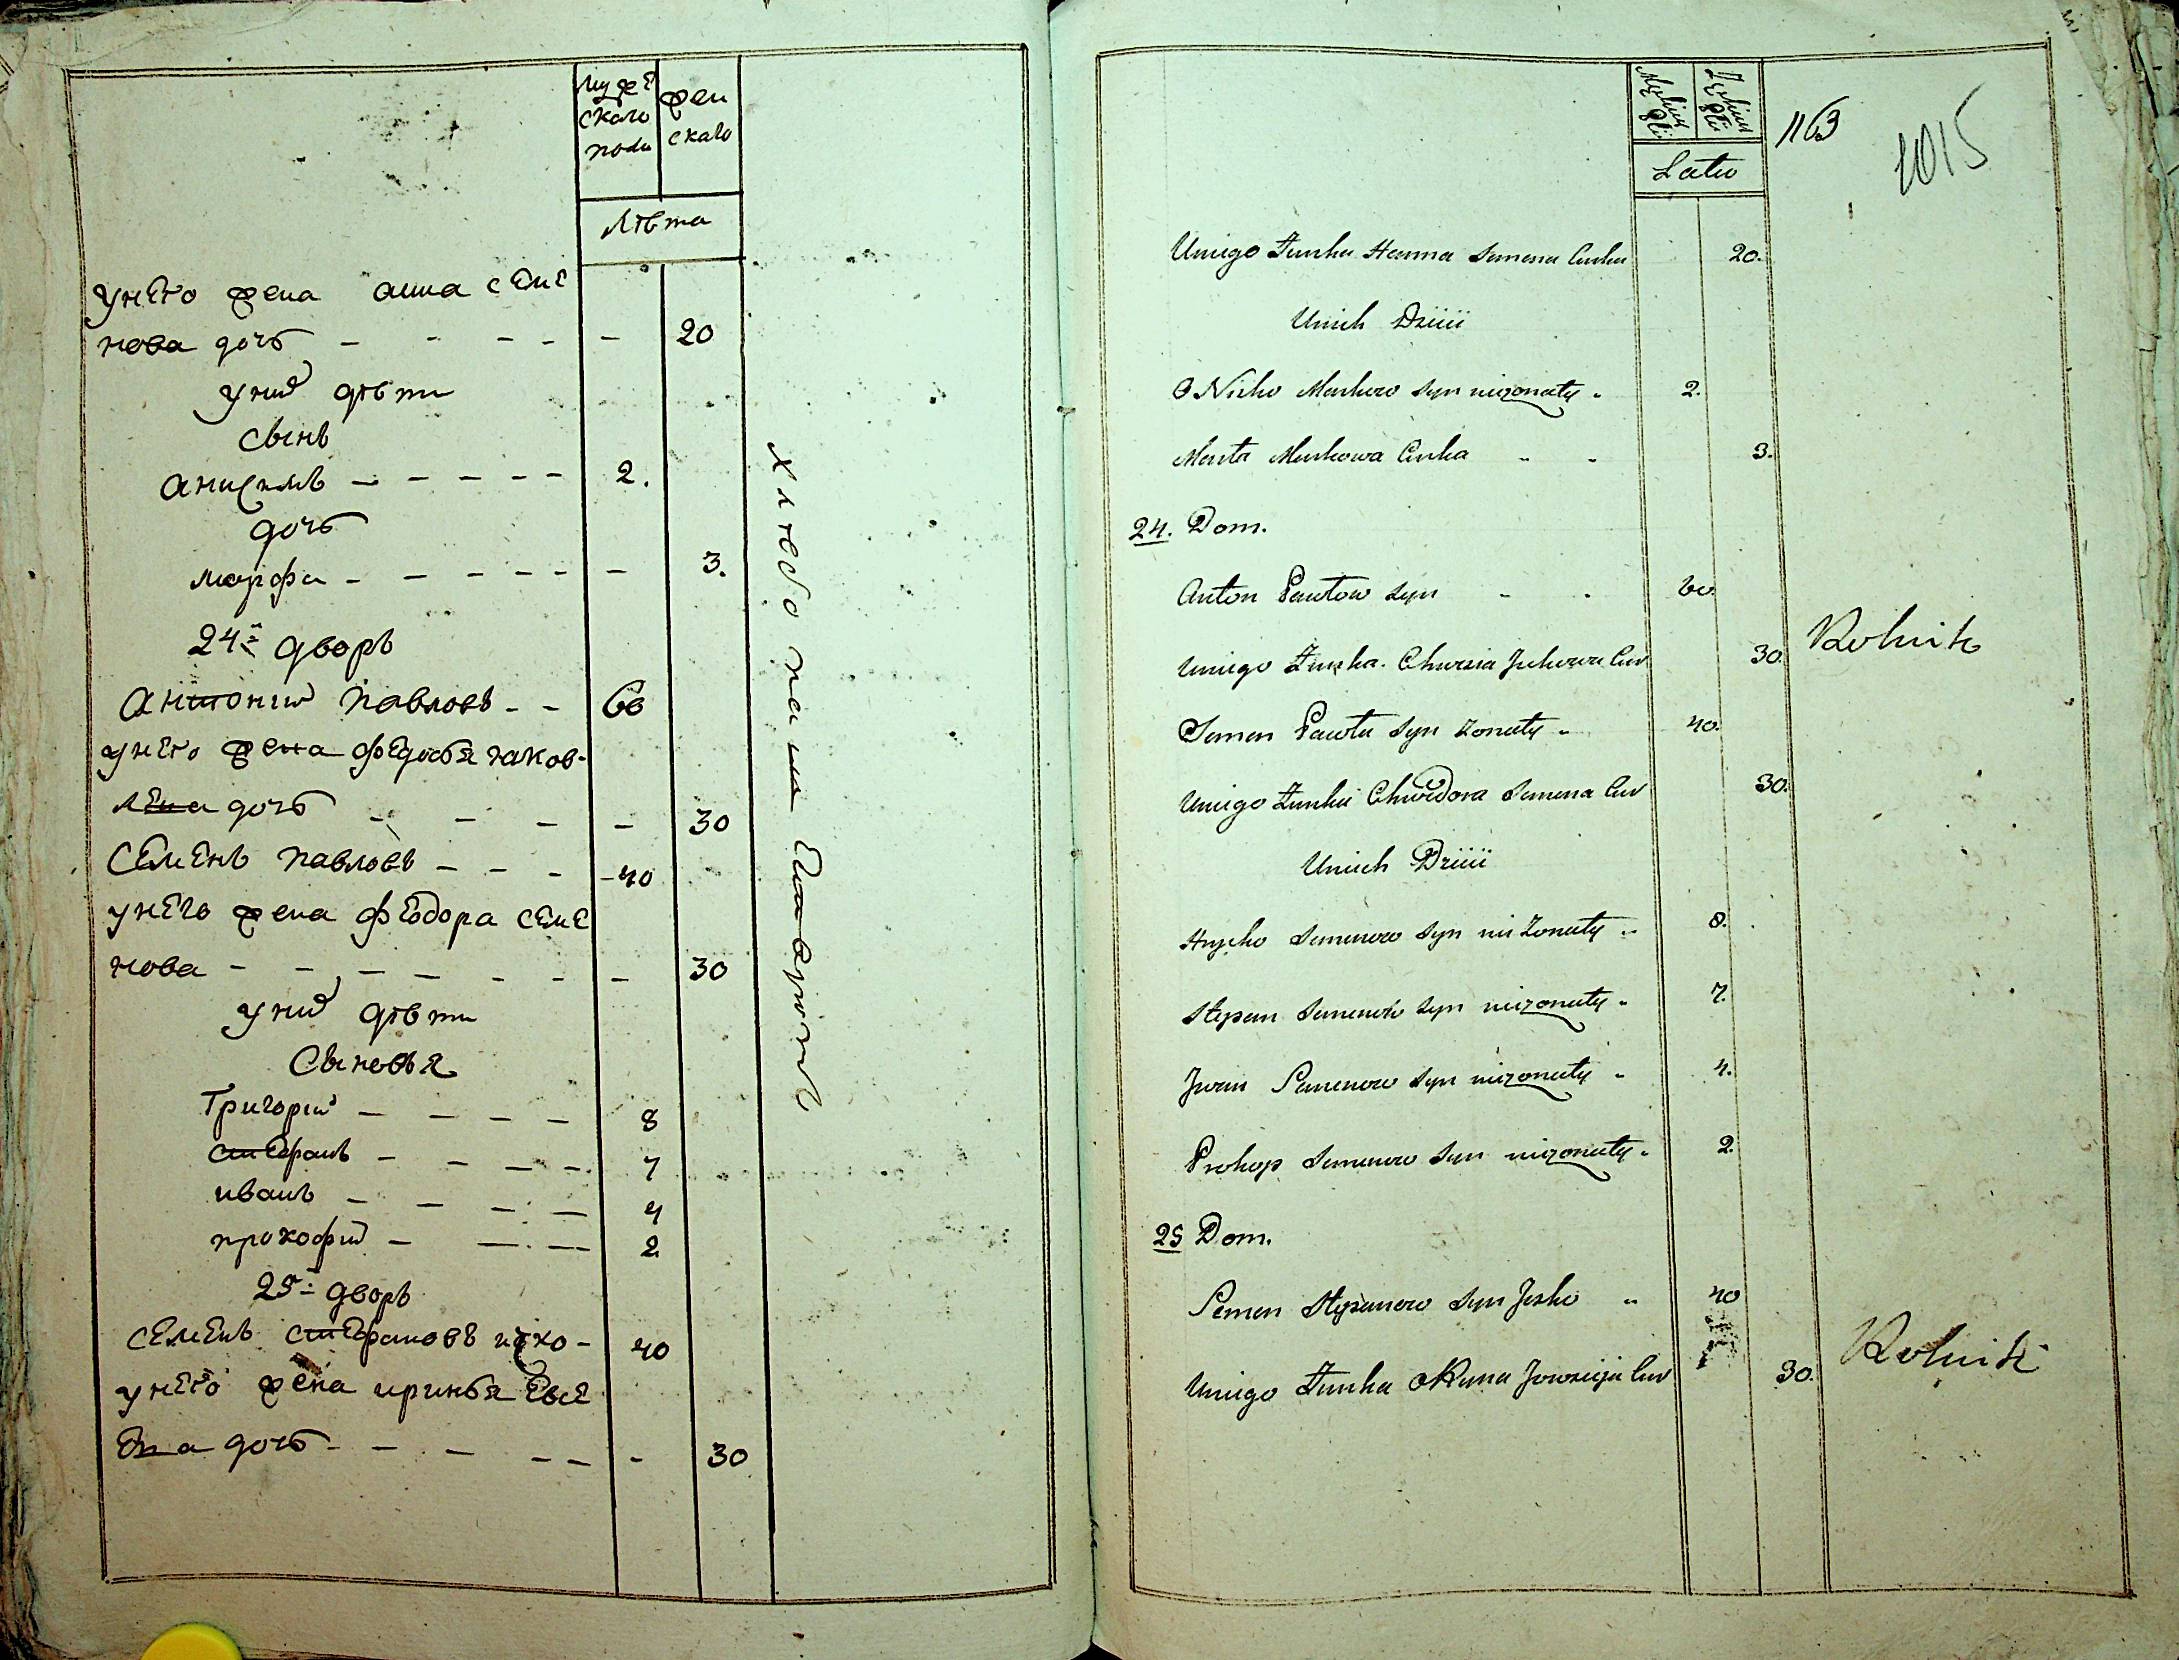 мужескаго полu
женскаго
лѣта
у него жена анна семе
нова дочь 20
у них дѣти
сынъ
анисимъ 2.
дочь
марфа 3.
24й дворъ
антоний павловъ 60
у него жена федосья яков-
лева дочь 30
семенъ павловъ 40
у него жена феодора семе
нова 30
у них дѣти
сыновья
григорий 8
стефанъ 7
иванъ 4
прокофий 2
25й дворъ
семенъ стефановъ 40
у него жена иринья евсе
ева дочь 30
хлебопашец
Męskiey Płci
Żęskiey Płci
Latu
1163
1015
Uniego Zunka Hanna Semena Curka 20.
Unich Dziiii
O Nisko Markow Syn niezonaty 2.
Marta Markowa Curka 3.
24. Dom.
Anton Pawłow Syn 60
Uniego Zunka Chwesia Jakowa Cur 30.
Rolnik
Semen Pawłu Syn zonaty 40.
Uniego Zunka Chwedora Semena Cur 30.
Unich Dziiii
Hrycko Semenow Syn nie Zonaty 8.
Stepan Semenow Syn niezonaty 7.
Jwan Semenow Syn niezonaty 4.
Prokop Semenow Syn niezonaty 2.
25 Dom.
Semen Stepanow Syn Jesko 40
Uniego Zunka Jowsieja Cur 30.
Rolnik